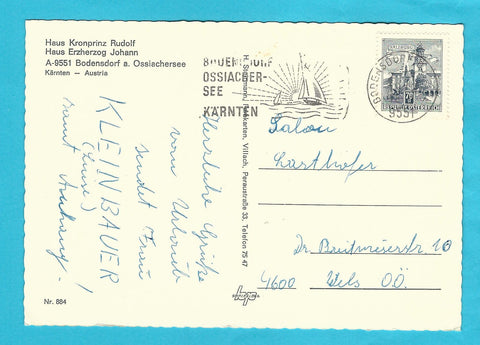 Haus Kronprinz Rudolf
Haus Erzherzog Johann
A-9551 Bodensdorf a. Ossiachersee
Kärnten – Austria
BODENSDORF
OSSIACHER-
SEE
KÄRNTEN
BODENSDORF
9551
REPUBLIK ÖSTERREICH
Herzliche Grüße
vom Urlaub
sendet Frau
KLEINBAUER
(Luise)
samt Anhang!
Ansichtskarten, Villach, Peraustraße 33, Telefon 75 47
Salon
Lasthofer
Dr. Breitwieserstr 10
4600 Wels OÖ.
Nr. 884